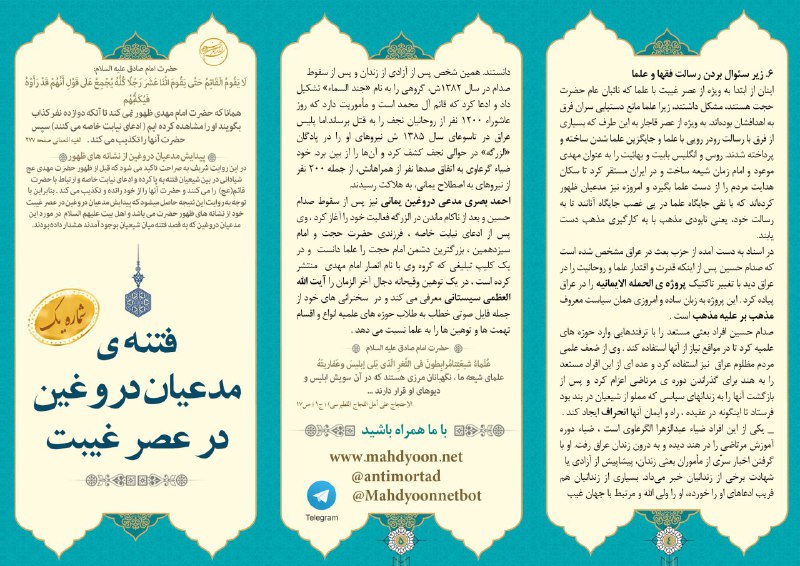 ۶. زیر سئوال بردن رسالت فقها و علما
اینان از ابتدا به ویژه از عصر غیبت با علما که نائبان عام حضرت
حجت هستند، مشکل داشتند، زیرا علما مانع دستیابی سران فرق
به اهدافشان بوده‌اند. به ویژه از عصر قاجار به این طرف که بسیاری
از فرق با رسالت رودر رویی با علما و جایگزین علما شدن ساخته و
پرداخته شدند. روس و انگلیس بابیت و بهائیت را به عنوان مهدی
موعود و امام زمان شیعه ساخت و در ایران مستقر کرد تا سکان
هدایت مردم را از دست علما بگیرد و امروزه نیز مدعیان ظهور
کرده‌اند که با نفی جایگاه علما در پی غصب جایگاه آنانند تا به
رسالت خود، یعنی نابودی مذهب با به کارگیری مذهب دست
یابند.
در اسناد به دست آمده از حزب بعث در عراق مشخص شده است
که صدام حسین پس از اینکه قدرت و اقتدار علما و روحانیت را در
عراق دید با تغییر تاکتیک پروژه ی الحمله الایمانیه را در عراق
پیاده کرد . این پروژه به زبان ساده و امروزی همان سیاست معروف
مذهب بر علیه مذهب است .
صدام حسین افراد بعثی مستعد را با ترفندهایی وارد حوزه های
علمیه کرد تا در مواقع نیاز از آنها استفاده کند . وی از ضعف علمی
مردم مظلوم عراق نیز استفاده کرد و عده ای از این افراد مستعد
را به هند برای گذراندن دوره ی مرتاضی اعزام کرد و پس از
بازگشت آنها را به زندانهای سیاسی که مملو از شیعیان در بند بود
فرستاد تا اینگونه در عقیده ، راه و ایمان آنها انحراف ایجاد کند .
_ یکی از این افراد ضیاء عبدالزهرا الگرعاوی است ، ضیاء دوره
آموزش مرتاضی را در هند دیده و به درون زندان عراق رفت. او با
گرفتن اخبار سرّی از مأموران یعنی زندان، پیشاپیش از آزادی یا
شهادت برخی از زندانیان خبر می‌داد. بسیاری از زندانیان هم
فریب ادعاهای او را خورده، او را ولی الله و مرتبط با جهان غیب
۴
دانستند. همین شخص پس از آزادی از زندان و پس از سقوط
صدام در سال ۱۳۸۲ش، گروهی را به نام «جند السماء» تشکیل
داد و ادعا کرد که قائم آل محمد است و مأموریت دارد که روز
عاشوراء ۱۲۰۰ نفر از روحانیان نجف را به قتل برساند. اما پلیس
عراق در تاسوعای سال ۱۳۸۵ ش نیروهای او را در پادگان
«الزرگه» در حوالی نجف کشف کرد و آن‌ها را از بین برد. خود
ضیاء گرعاوی به اتفاق صدها نفر از همراهانش، از جمله ۲۰۰ نفر
از نیروهای به اصطلاح یمانی، به هلاکت رسیدند.
احمد بصری مدعی دروغین یمانی نیز پس از سقوط صدام
حسین و بعد از ناکام ماندن در الزرگه فعالیت خود را آغاز کرد ، وی
پس از ادعای نیابت خاصه ، فرزندی حضرت حجت و امام
سیزدهمین ، بزرگترین دشمن امام حجت را علما دانست و در
یک کلیپ تبلیغی که گروه وی با نام انصار امام مهدی منتشر
کرده است ، در یک توهین وقیحانه دجال آخر الزمان را آیت الله
العظمی سیستانی معرفی می کند و در سخنرانی های خود از
جمله فایل صوتی خطاب به طلاب حوزه های علمیه انواع و اقسام
تهمت ها و توهین ها را به علما نسبت می دهد .
حضرت امام صادق علیه السلام
عُلَماءُ شیعَتِنامُرابِطونَ فی الثَّغرِ الَّذی یَلی اِبلیسَ وعَفاریتَهُ
علمای شیعه ما ، نگهبانان مرزی هستند که در آن سویش ابلیس و
دیوهای او قرار دارند ...
الاحتجاج علی أهل اللجاج (للطبرسی) ؛ ج۱ ؛ ص۱۷
با ما همراه باشید
www.mahdyoon.net
@antimortad
@Mahdyoonnetbot
Telegram
۵
حضرت امام صادق علیه السلام:
لَا يَقُومُ الْقَائِمُ حَتَّى يَقُومَ اثْنَا عَشَرَ رَجُلًا كُلُّهُ يُجْمِعُ عَلَى قَوْلِ أَنَّهُمْ قَدْ رَأَوْهُ
فَيُكَذِّبُهُمْ
همانا که حضرت امام مهدی ظهور نمی کند تا آنکه دوازده نفر کذاب
بگویند او را مشاهده کرده ایم ( ادعای نیابت خاصه می کنند) سپس
حضرت آنها را تکذیب می کند. غیبه النعمانی صفحه ۲۷۷
پیدایش مدعیان دروغین از نشانه های ظهور
در این روایت شریف به صراحت تاکید می شود که قبل از ظهور حضرت مهدی عج
شیادانی در بین شیعیان فتنه به پا کرده و ادعای نیابت خاصه و ارتباط با حضرت
قائم(عج) را می کنند و حضرت آنها را از خود رانده و تکذیب می کند . بنابراین با
توجه به روایت این نتیجه حاصل میشود که پیدایش مدعیان دروغین در عصر غیبت
خود از نشانه های ظهور حضرت می باشد و اهل بیت علیهم السلام در مورد این
مدعیان دروغین که به قصد فتنه میان شیعیان بوجود آمدند هشدار داده بودند.
شماره یک
فتنه ی
مدعیان دروغین
در عصر غیبت